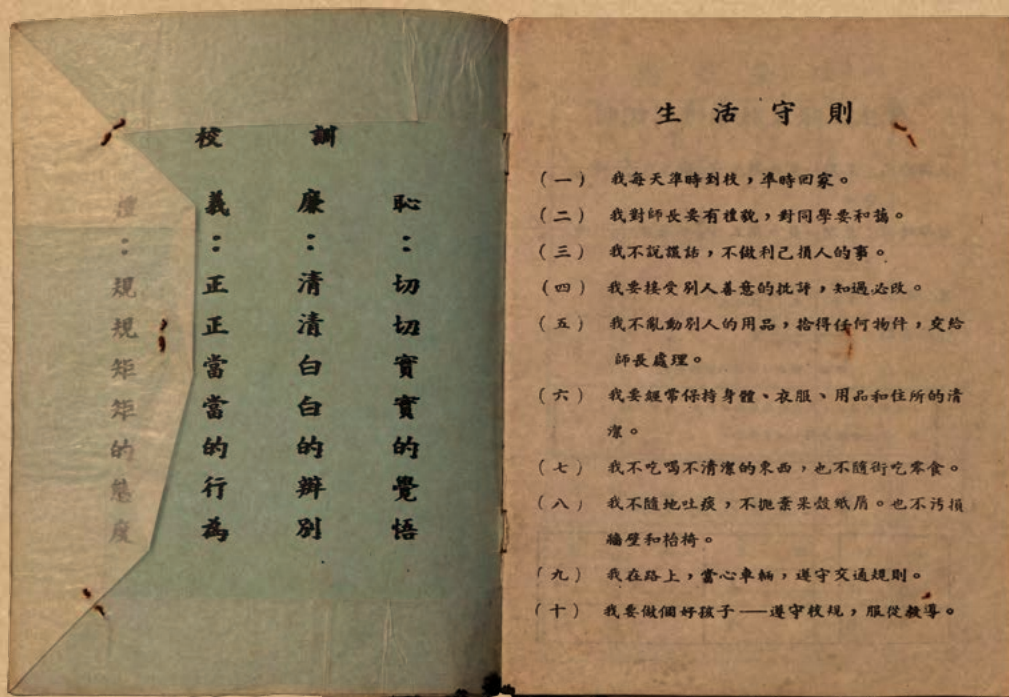 校訓
禮：規規矩矩的態度
義：正正當當的行為
廉：清清白白的辨別
恥：切切實實的覺悟
生活守則
(一) 我每天準時到校，準時回家。
(二) 我對師長要有禮貌，對同學要和藹。
(三) 我不說謊話，不做利己損人的事。
(四) 我要接受別人善意的批評，知過必改。
(五) 我不亂動別人的用品，拾得任何物件，交給
師長處理。
(六) 我要經常保持身體、衣服、用品和住所的清
潔。
(七) 我不吃喝不清潔的東西，也不隨街吃零食。
(八) 我不隨地吐痰，不拋棄果殼紙屑。也不污損
牆壁和枱椅。
(九) 我在路上，當心車輛，遵守交通規則。
(十) 我要做個好孩子——遵守校規，服從教導。